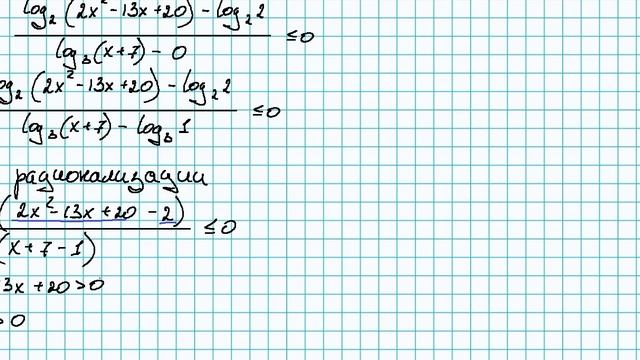 log₂(2x²-13x+20) - log₂2
≤0
log₃(x+7) - 0
log₂(2x²-13x+20) - log₂2
≤0
log₃(x+7) - log₃1
рационализации
(2x²-13x+20-2)
≤0
(x+7-1)
3x+20>0
>0